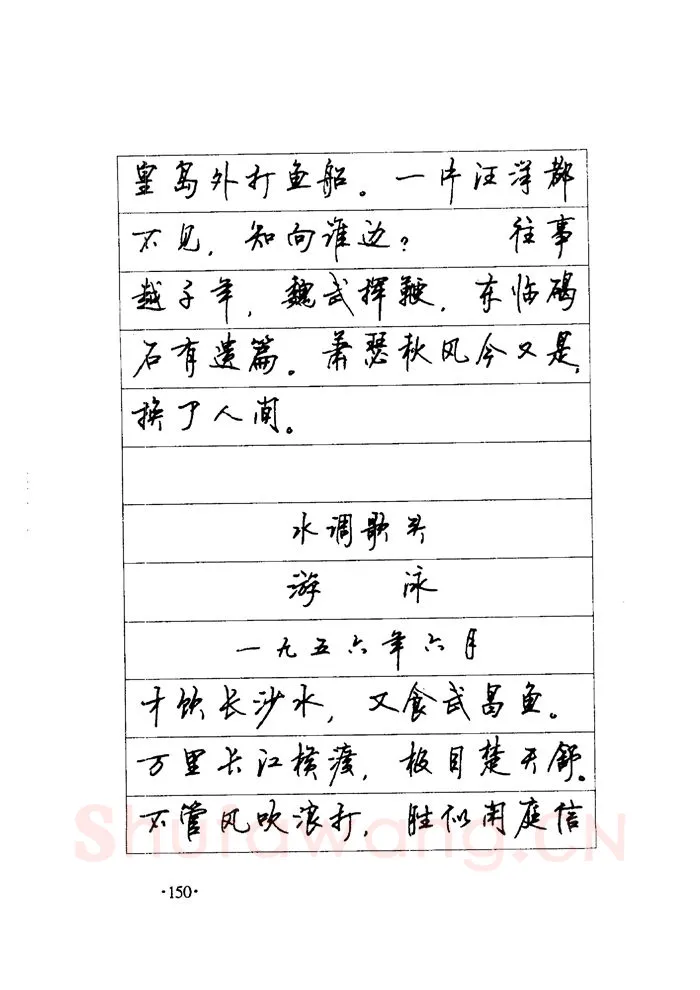 皇岛外打鱼船。一片汪洋都
不见，知向谁边？　　往事
越千年，魏武挥鞭，东临碣
石有遗篇。萧瑟秋风今又是，
换了人间。
水调歌头
游　　泳
一九五六年六月
才饮长沙水，又食武昌鱼。
万里长江横渡，极目楚天舒。
不管风吹浪打，胜似闲庭信
Shufawang.CN
·150·